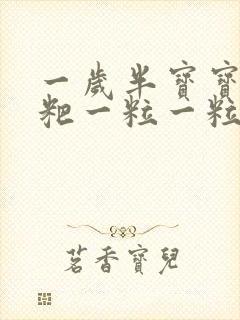 一歲半寶寶
粑一粒一粒
茗香寶兒